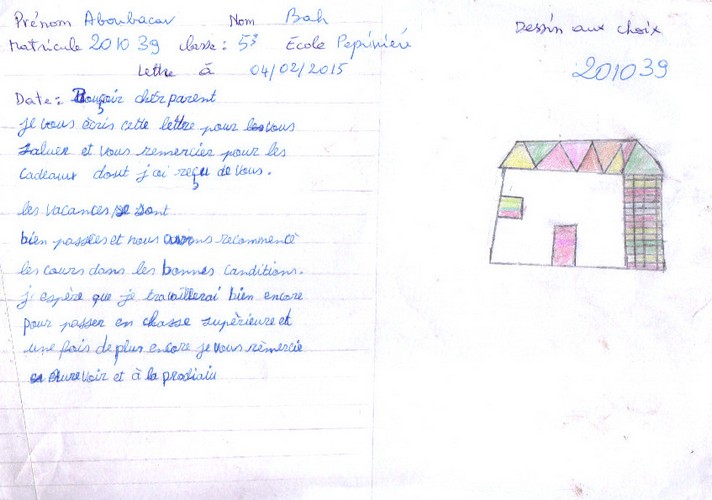 Prénom Aboubacar Nom Bah
Matricule 201039 classe: 5è École Pépinière
Lettre à 04/02/2015
Date: Bonçoir chèr parent
je vous ècris cette lettre pour vous
saluer et vous remercier pour les
cadeaux dont j'ai reçu de vous.
les vacances se sont
bien passées et nous avons recommencè
les cours dans les bonnes conditions.
j'espère que je travaillerai bien encore
pour passer en chasse supèrieure et
une fois de plus encore je vous rèmercie
aurevoir et à la
Dessin aux choix
201039